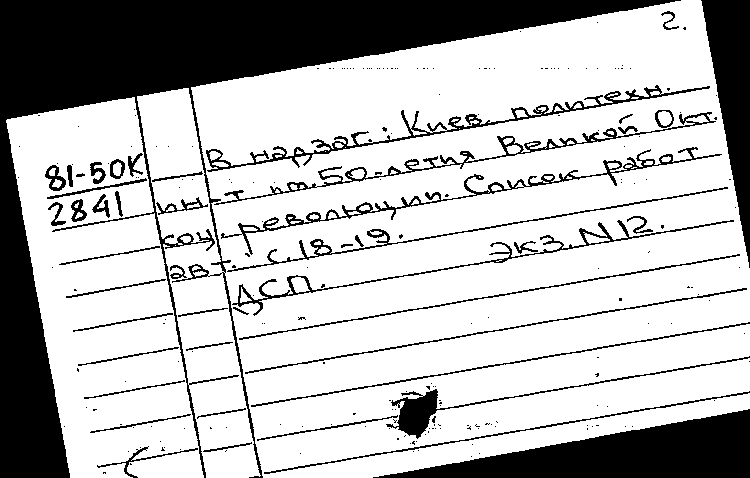 2.
81-50К
2841
В надзаг.: Киев. политехн.
ин-т им. 50-летия Великой Окт.
соц. революции. Список работ
авт.: с. 18-19.
ДСП. Экз. N 12.